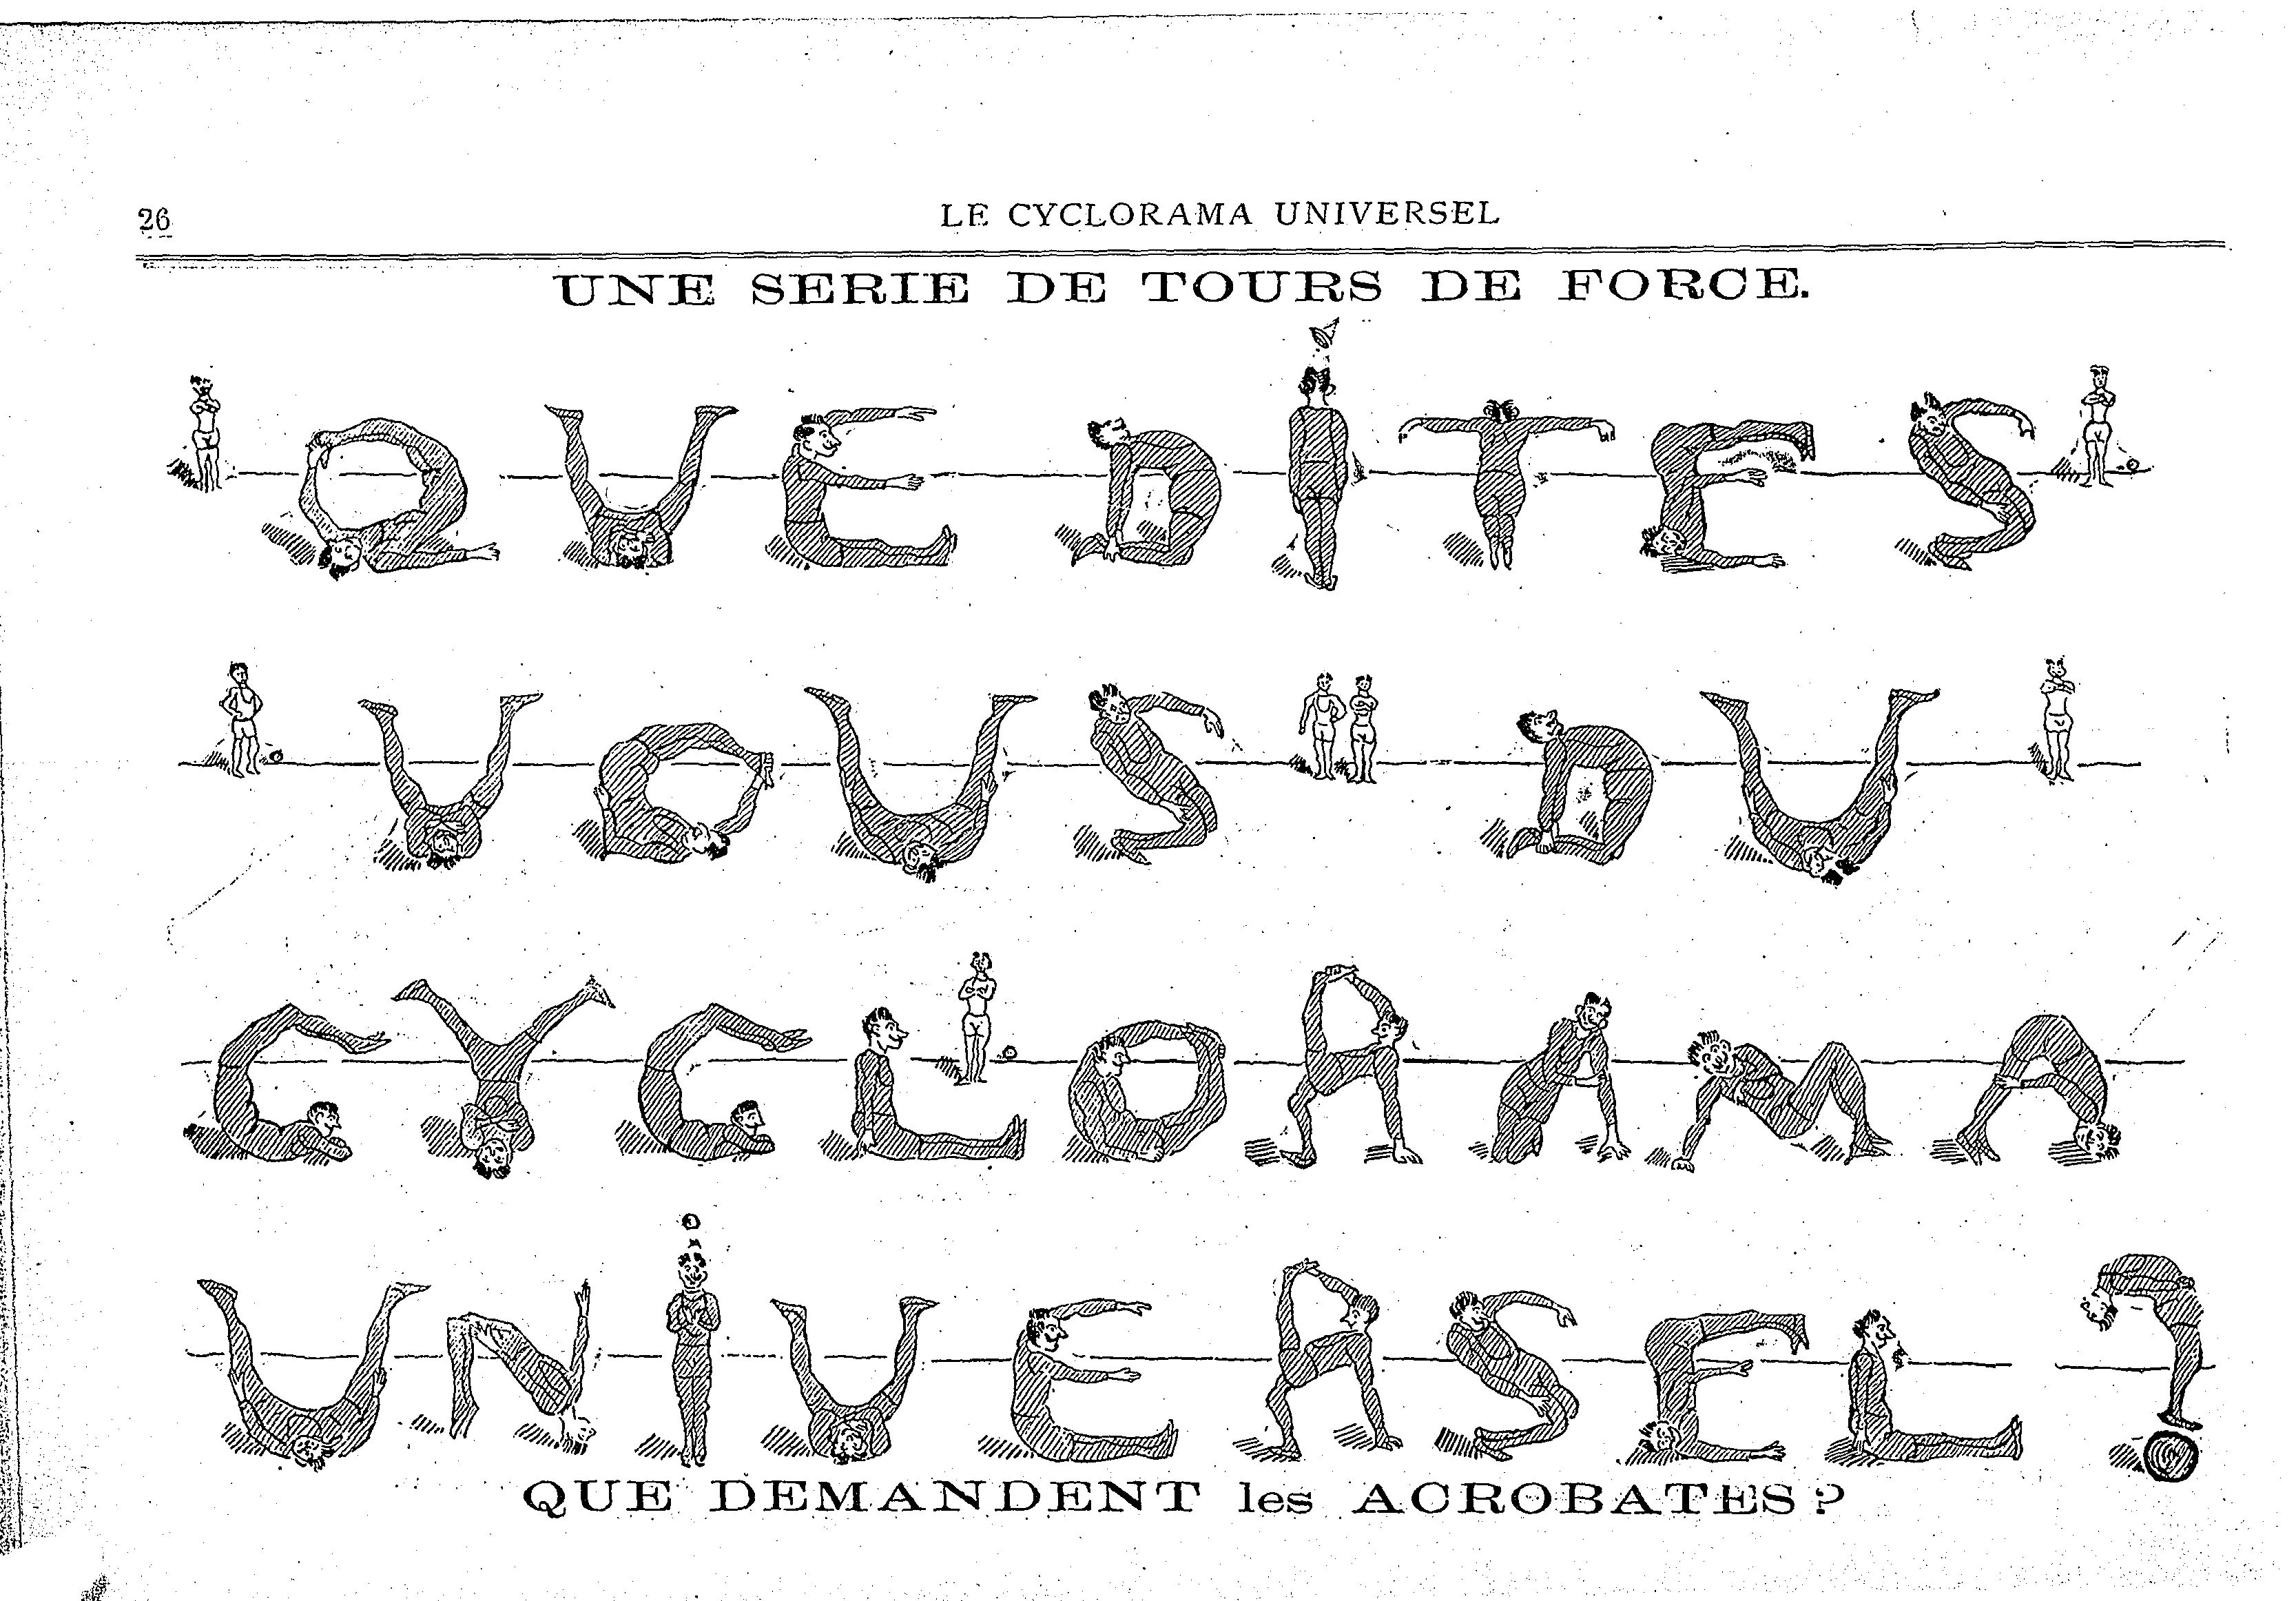 26
LE CYCLORAMA UNIVERSEL
UNE SERIE DE TOURS DE FORCE.
QUE DITES
VOUS DU
CYCLORAMA
UNIVERSEL?
QUE DEMANDENT les ACROBATES?